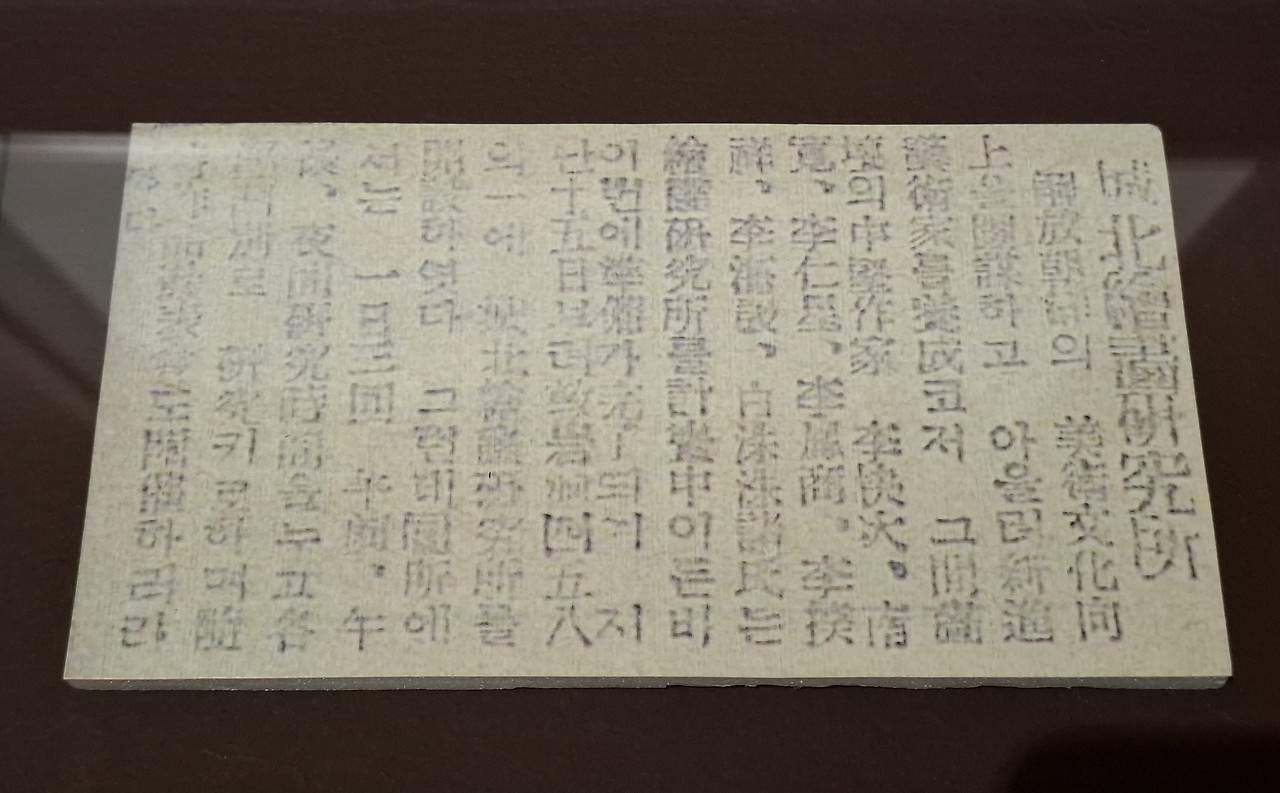 城北繪畵硏究所
解放朝鮮의 美術文化向
上을圖謀하고 아울러新進
藝術家를養成코저 그間畵
壇의中堅作家 李快大、南
寬、李仁星、李鳳商、李揆
祥、李海設、白洙洙諸氏는
繪畵硏究所를計畫中이든바
이번에準備가完了되여 지
난十五日부터敦岩洞四五八
의一에 城北繪畵硏究所를
開設하엿다 그런데同所에
서는 一日三回 午前、午
後、夜間硏究時間을두고各
로 硏究키로하며隨
도開催하리라
한다